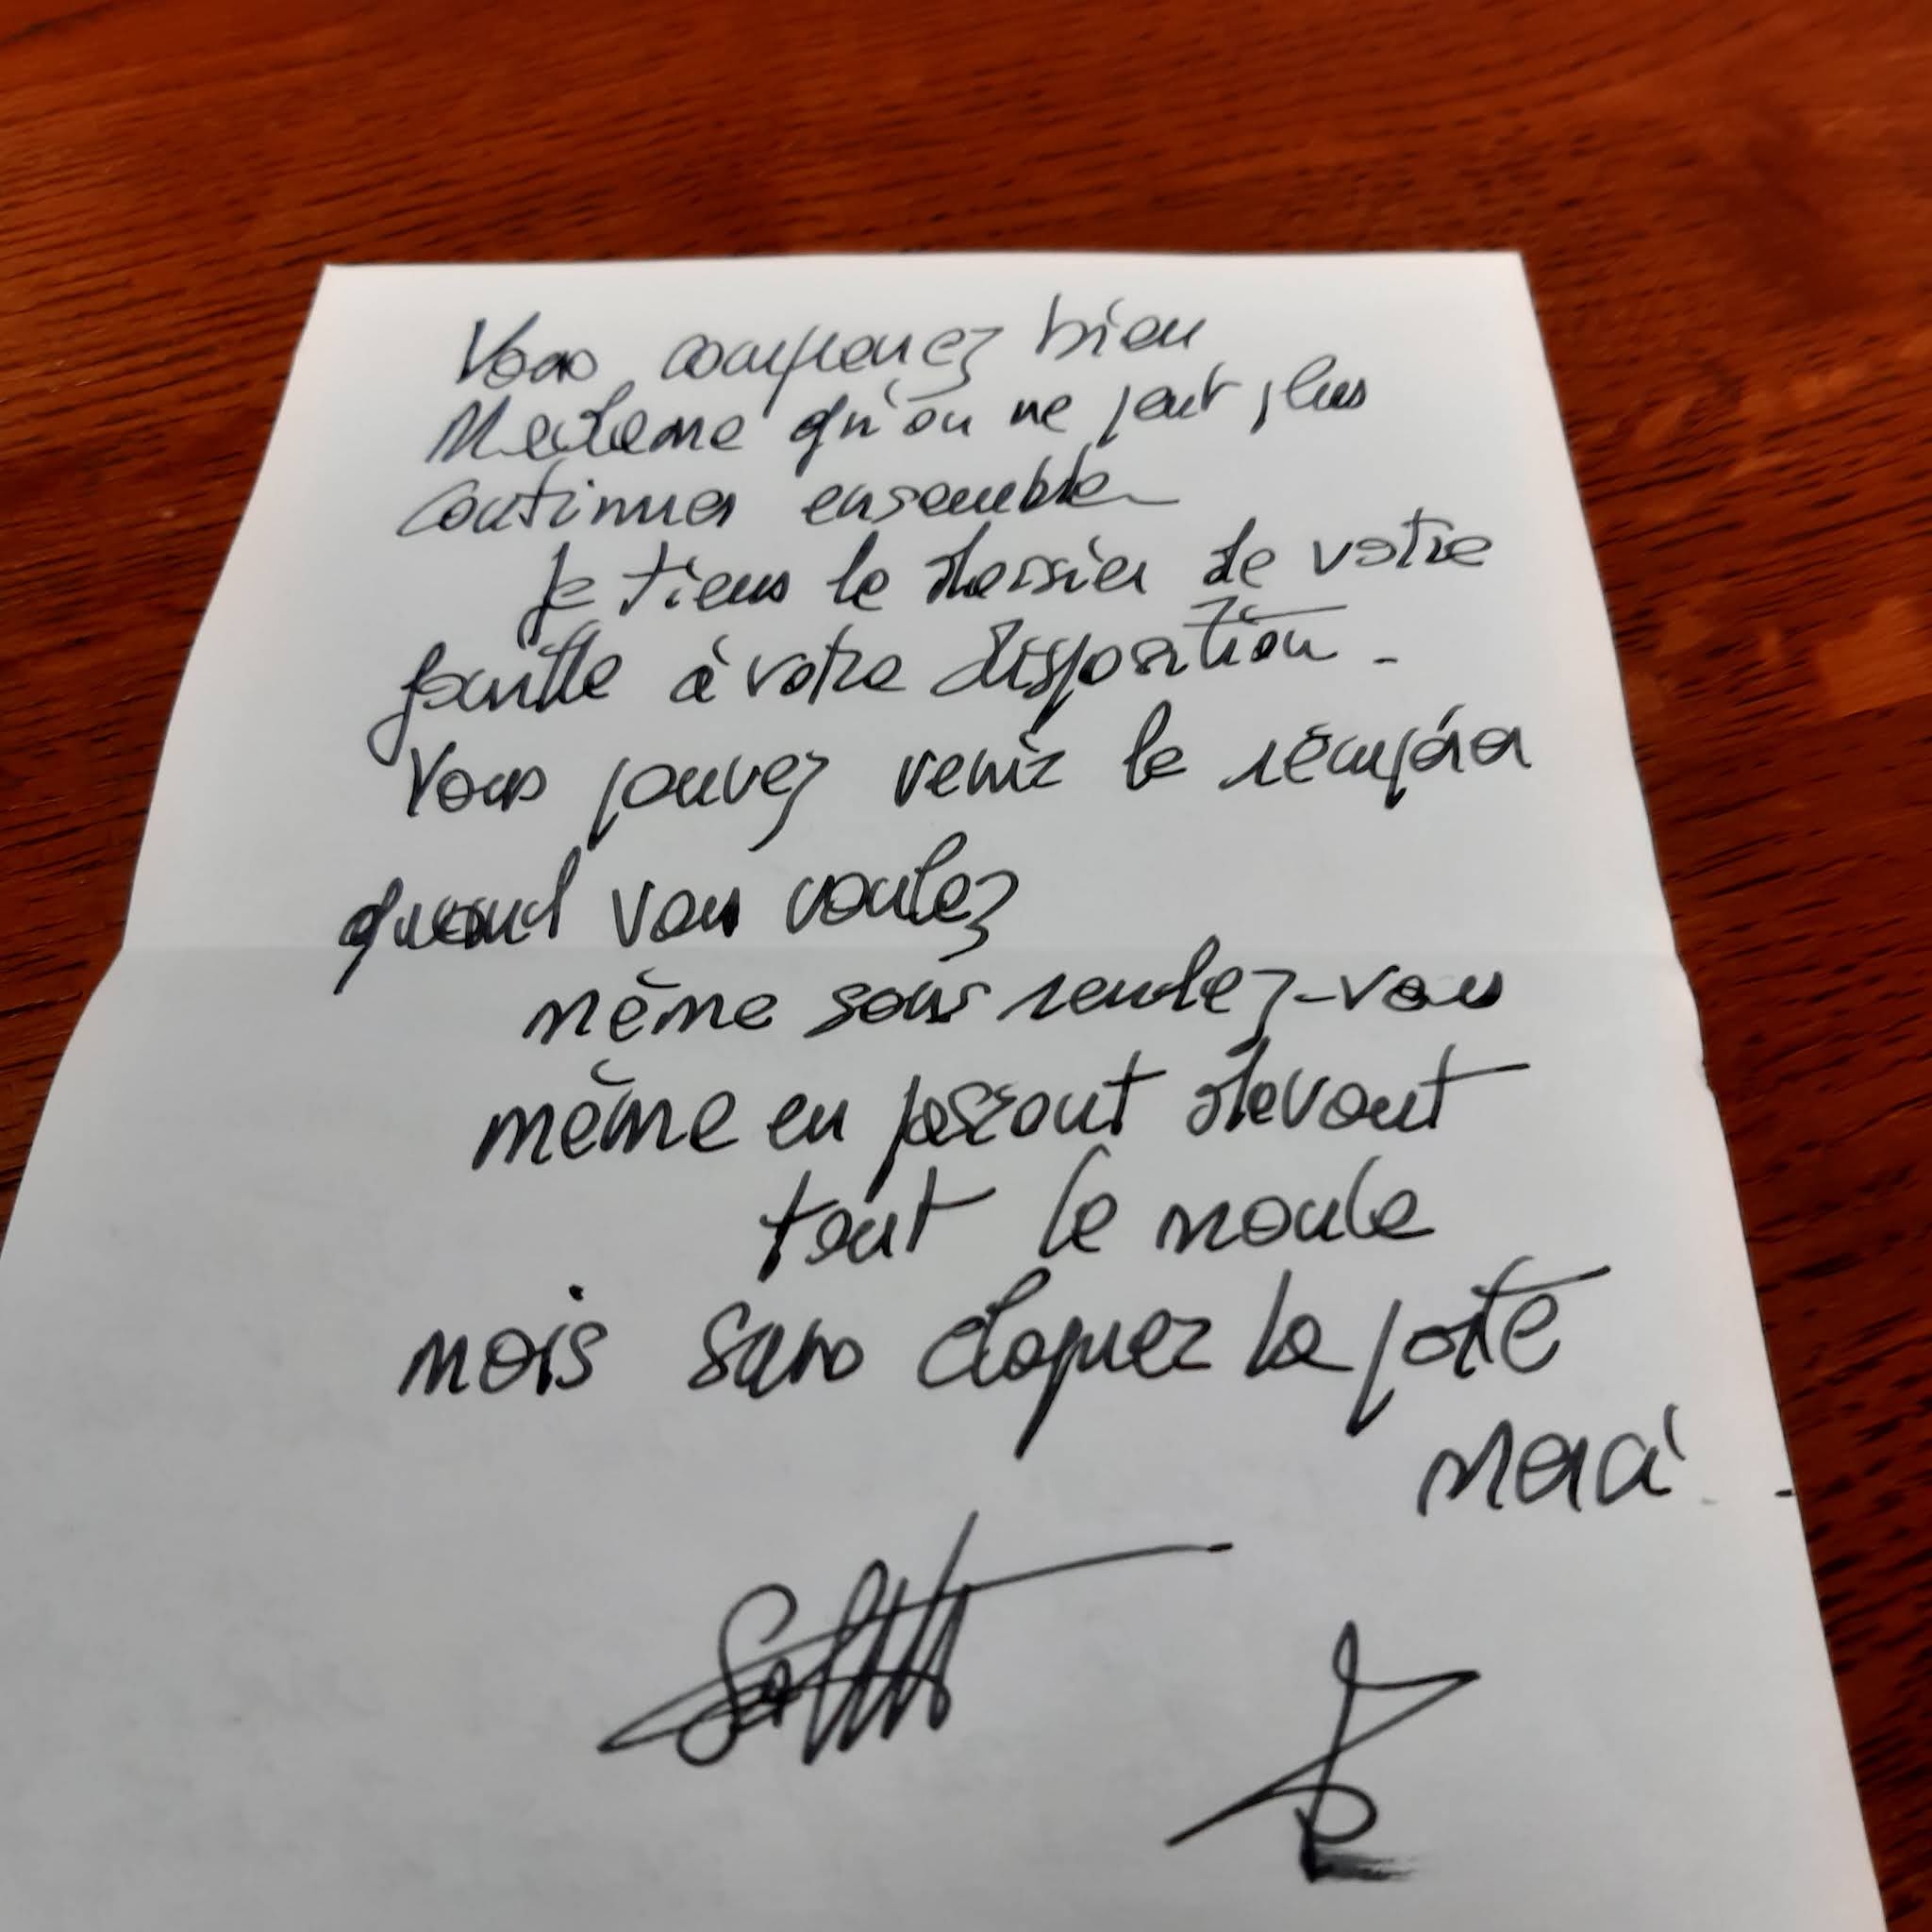 Vous comprenez bien
Madame qu'on ne peut plus
continuer ensemble
Je tiens le dossier de votre
famille à votre disposition -
Vous pouvez venir le récupérer
quand vous voulez
même sans rendez-vous
même en passant devant
tout le monde
mais sans claquer la porte
merci -